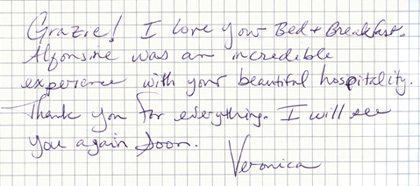 Grazie! I love your Bed + Breakfast.
Alfonsine was an incredible
experience with your beautiful hospitality.
Thank you for everything. I will see
you again soon.
Veronica